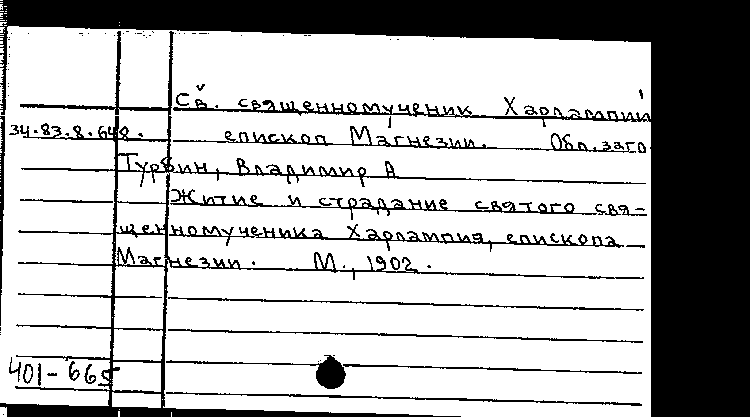 Св. священномученик Харлампий
34.83.8.648. епископ Магнезии. Обл. загл
Турбин, Владимир А
Житие и страдание святого свя-
щенномученика Харлампия, епископа
Магнезии. М., 1902.
401-665